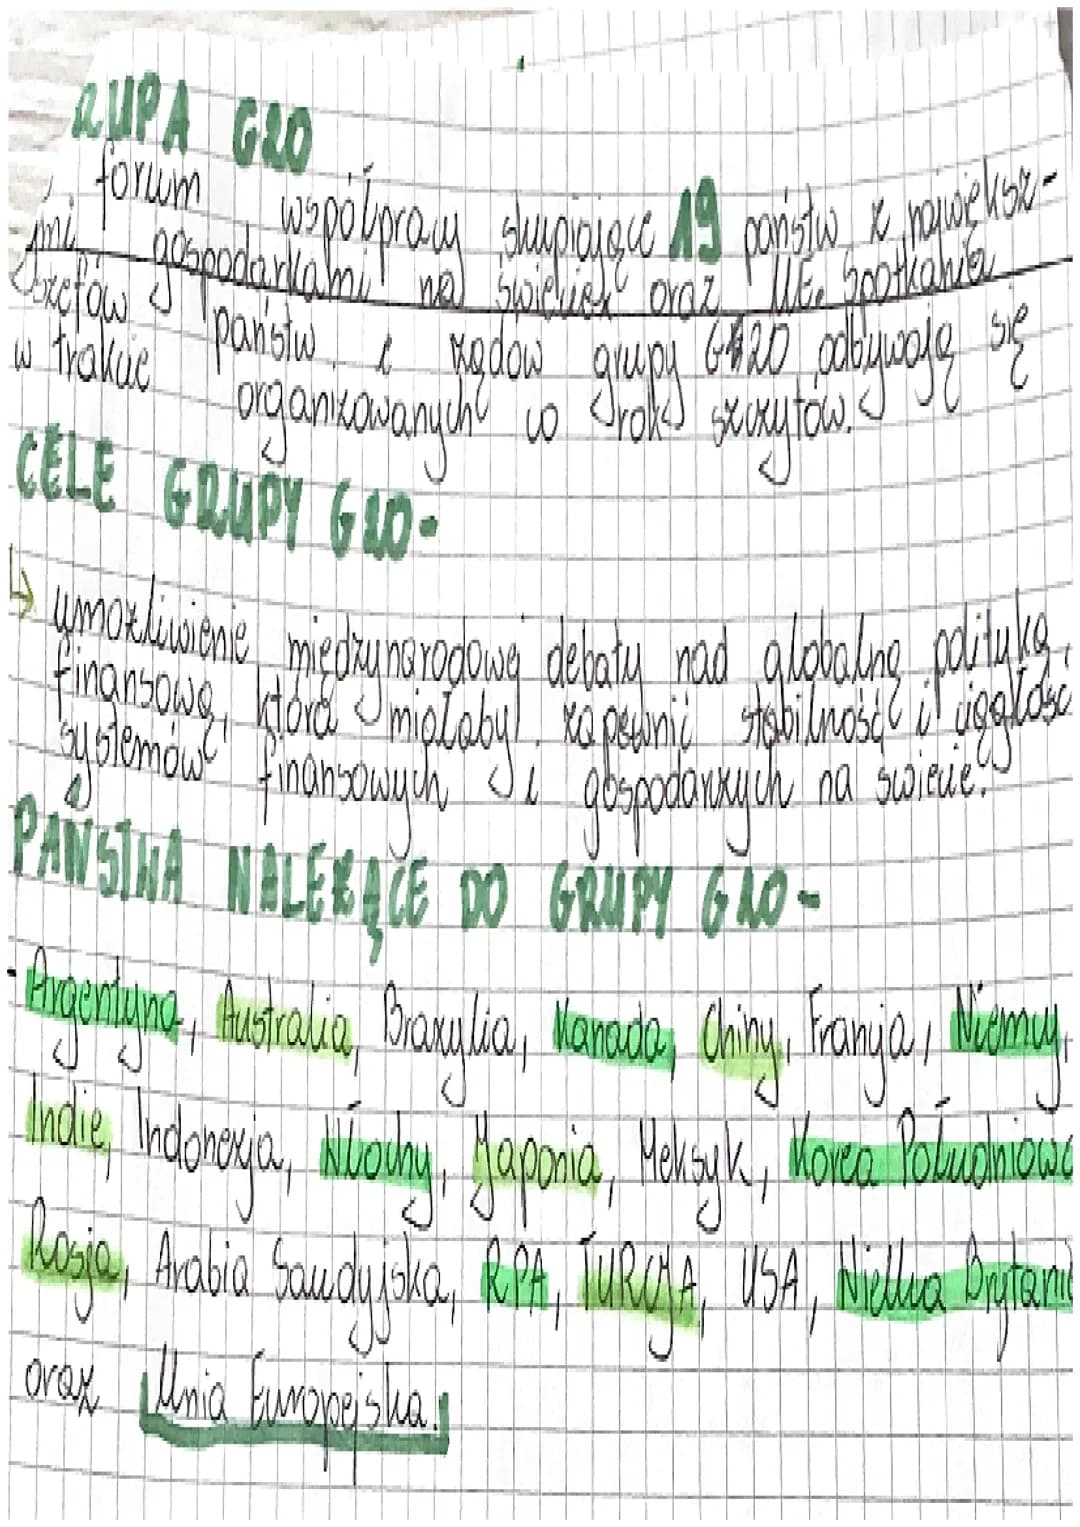 RUPA G20
forum współpracy skupiające 19 państw z najwięksy-
mi gospodarkami na świecie oraz UE. Spotkania
szefów państw i rządów grupy G20 odbywają się
w trakcie organizowanych co rok szczytów.
CELE GRUPY G20-
↳ umożliwienie międzynarodową debaty nad globalną polityką
finansową, która miałaby zapewnić stabilność i ciągłość
systemów finansowych i gospodarczych na świecie.
PAŃSTWA NALEŻĄCE DO GRUPY G20-
- Argentyna, Australia, Brazylia, Kanada, Chiny, Francja, Niemcy,
Indie, Indonezja, Włochy, Japonia, Meksyk, Korea Południowa
Rosja, Arabia Saudyjska, RPA, TURCJA, USA, Wielka Brytania
oraz Unia Europejska.